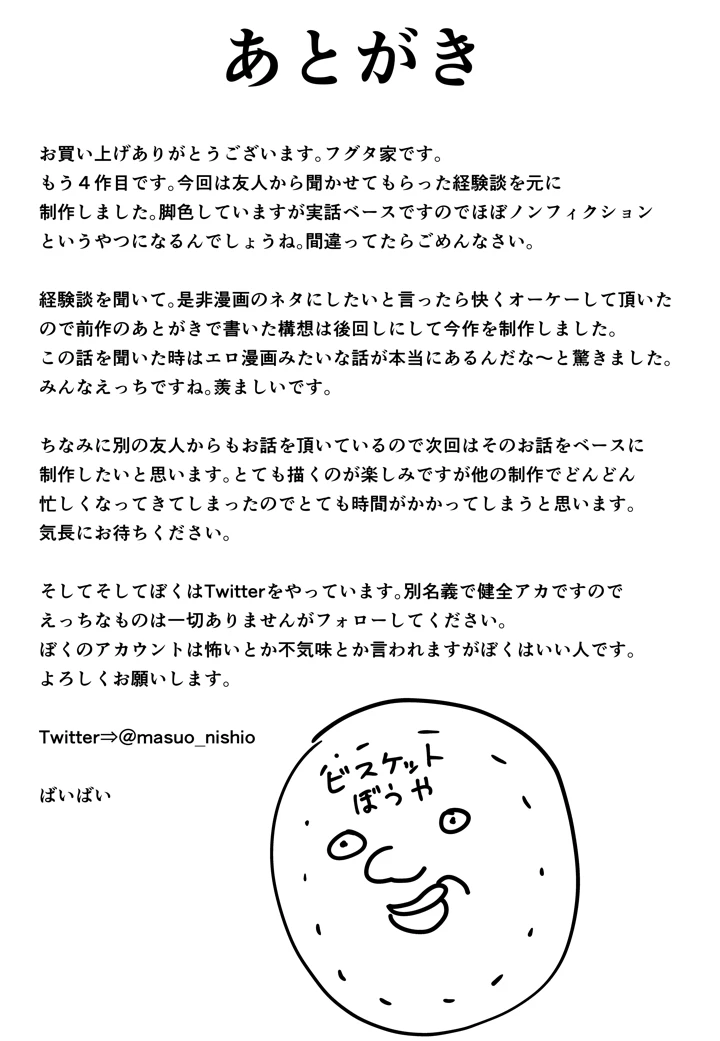 あとがき
お買い上げありがとうございます。フグタ家です。
もう４作目です。今回は友人から聞かせてもらった経験談を元に
制作しました。脚色していますが実話ベースですのでほぼノンフィクション
というやつになるんでしょうね。間違ってたらごめんなさい。
経験談を聞いて。是非漫画のネタにしたいと言ったら快くオーケーして頂いた
ので前作のあとがきで書いた構想は後回しにして今作を制作しました。
この話を聞いた時はエロ漫画みたいな話が本当にあるんだな～と驚きました。
みんなえっちですね。羨ましいです。
ちなみに別の友人からもお話を頂いているので次回はそのお話をベースに
制作したいと思います。とても描くのが楽しみですが他の制作でどんどん
忙しくなってきてしまったのでとても時間がかかってしまうと思います。
気長にお待ちください。
そしてそしてぼくはTwitterをやっています。別名義で健全アカですので
えっちなものは一切ありませんがフォローしてください。
ぼくのアカウントは怖いとか不気味とか言われますがぼくはいい人です。
よろしくお願いします。
Twitter⇒@masuo_nishio
ばいばい
ビスケット
ぼうや